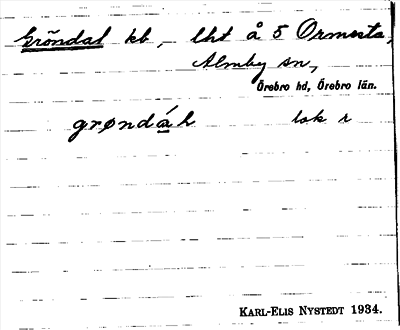 Gröndal kb, lht å 5 Ormesta,
Almby sn,
Örebro hd, Örebro län.
grøndáh lok r
KARL-ELIS NYSTEDT 1934.